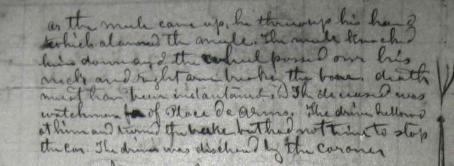 as the mule came up, he threw up his hand
which alarmed the mule. The mule knocked
him down and the wheel passed over his
neck and right arm broke the bones. death
must have been instantaneous. The deceased was
watchman of Place de Arms. The driver hellowed
at him and turned the brake but had nothing to stop
the car. The driver was discharged by the coroner